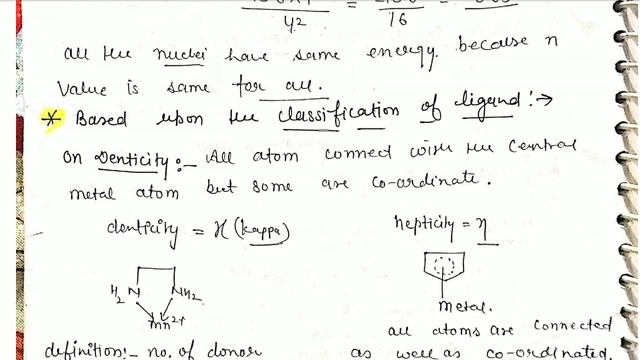 42 = 16 =
all the nuclei have same energy because n
value is same for all.
* Based upon the classification of ligand:→
on Denticity:- All atom connect with the Central
metal atom but some are co-ordinate.
denticity = ϰ (kappa)
hepticity = η
H2N NH2
Mn2+
metal.
all atoms are connected
definition:- no. of donor
as well as co-ordinated.